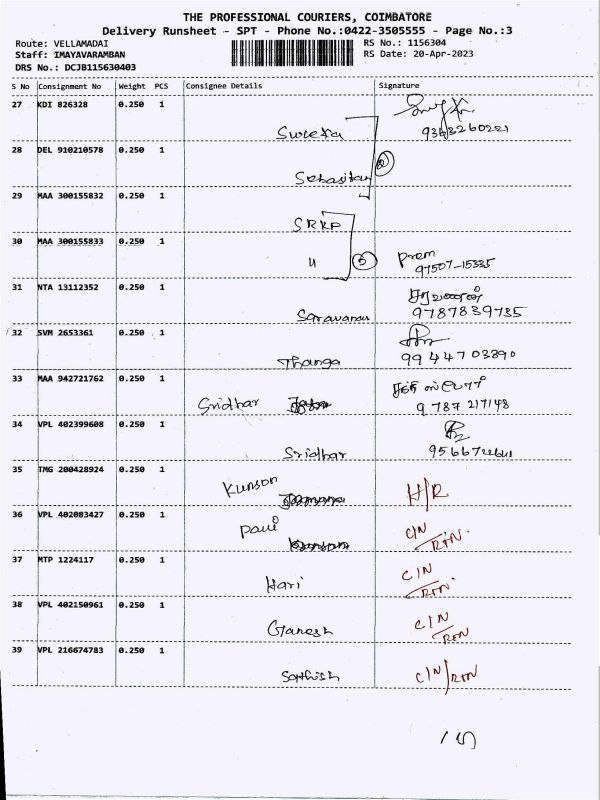 THE PROFESSIONAL COURIERS, COIMBATORE
Delivery Runsheet - SPT - Phone No.:0422-3505555 - Page No.:3
Route: VELLAMADAI
RS No.: 1156304
Staff: IMAYAVARAMBAN
RS Date: 20-Apr-2023
DRS No.: DCJB115630403
S No Consignment No Weight PCS Consignee Details Signature
27 KDI 826328 0.250 1
Sureka 9363260221
28 DEL 910210578 0.250 1
Sebasitan
29 MAA 300155832 0.250 1
SRKP
30 MAA 300155833 0.250 1
u Prem
97507-15335
31 NTA 13112352 0.250 1
சரவணன்
Saravanan 9787839735
32 SVM 2653361 0.250 1
Thanga 9944703890
33 MAA 942721762 0.250 1
Sridhar 9787 217148
34 VPL 402399608 0.250 1
Sridhar
35 TMG 200428924 0.250 1
Kunson H/R
36 VPL 402083427 0.250 1
Paul C/N/RTN
37 MTP 1224117 0.250 1
Hari C/N/RTN
38 VPL 402150961 0.250 1
Ganesh C/N/RTN
39 VPL 216674783 0.250 1
Sathish C/N/RTN